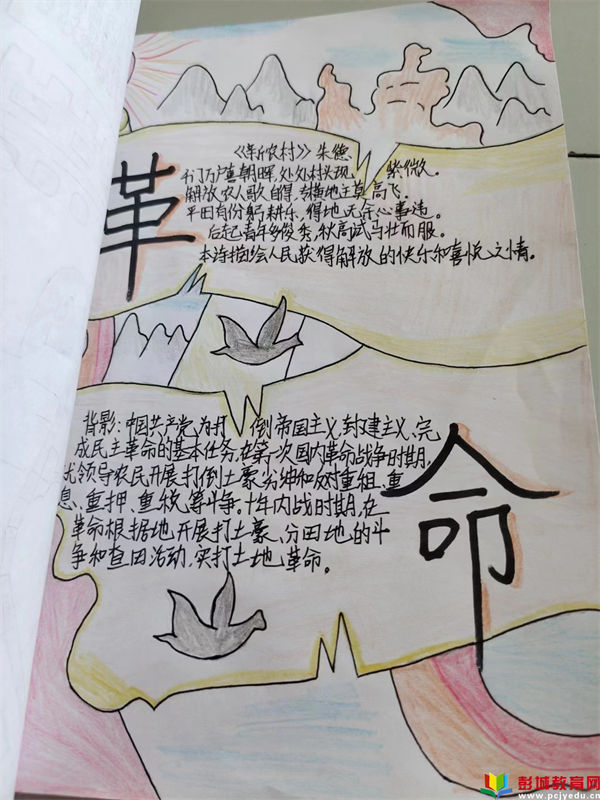 革
《新农村》朱德
千门万户喜朝晖，处处村头现 紫微。
解放农人歌自得，专横地主莫高飞。
平田有份躬耕乐，得地无余心事违。
后起青年多俊秀，秋高试马壮而肥。
本诗描绘人民获得解放的快乐和喜悦之情。
背影：中国共产党为打 倒帝国主义、封建主义、完
成民主革命的基本任务，在第一次国内革命战争时期，
就领导农民开展打倒土豪劣绅和反对重租、重
息、重押、重税等斗争，十年内战时期，在
革命根据地开展打土豪、分田地的斗
争和查田活动，实打土地革命。
命
彭城教育网
www.pcjyedu.cn